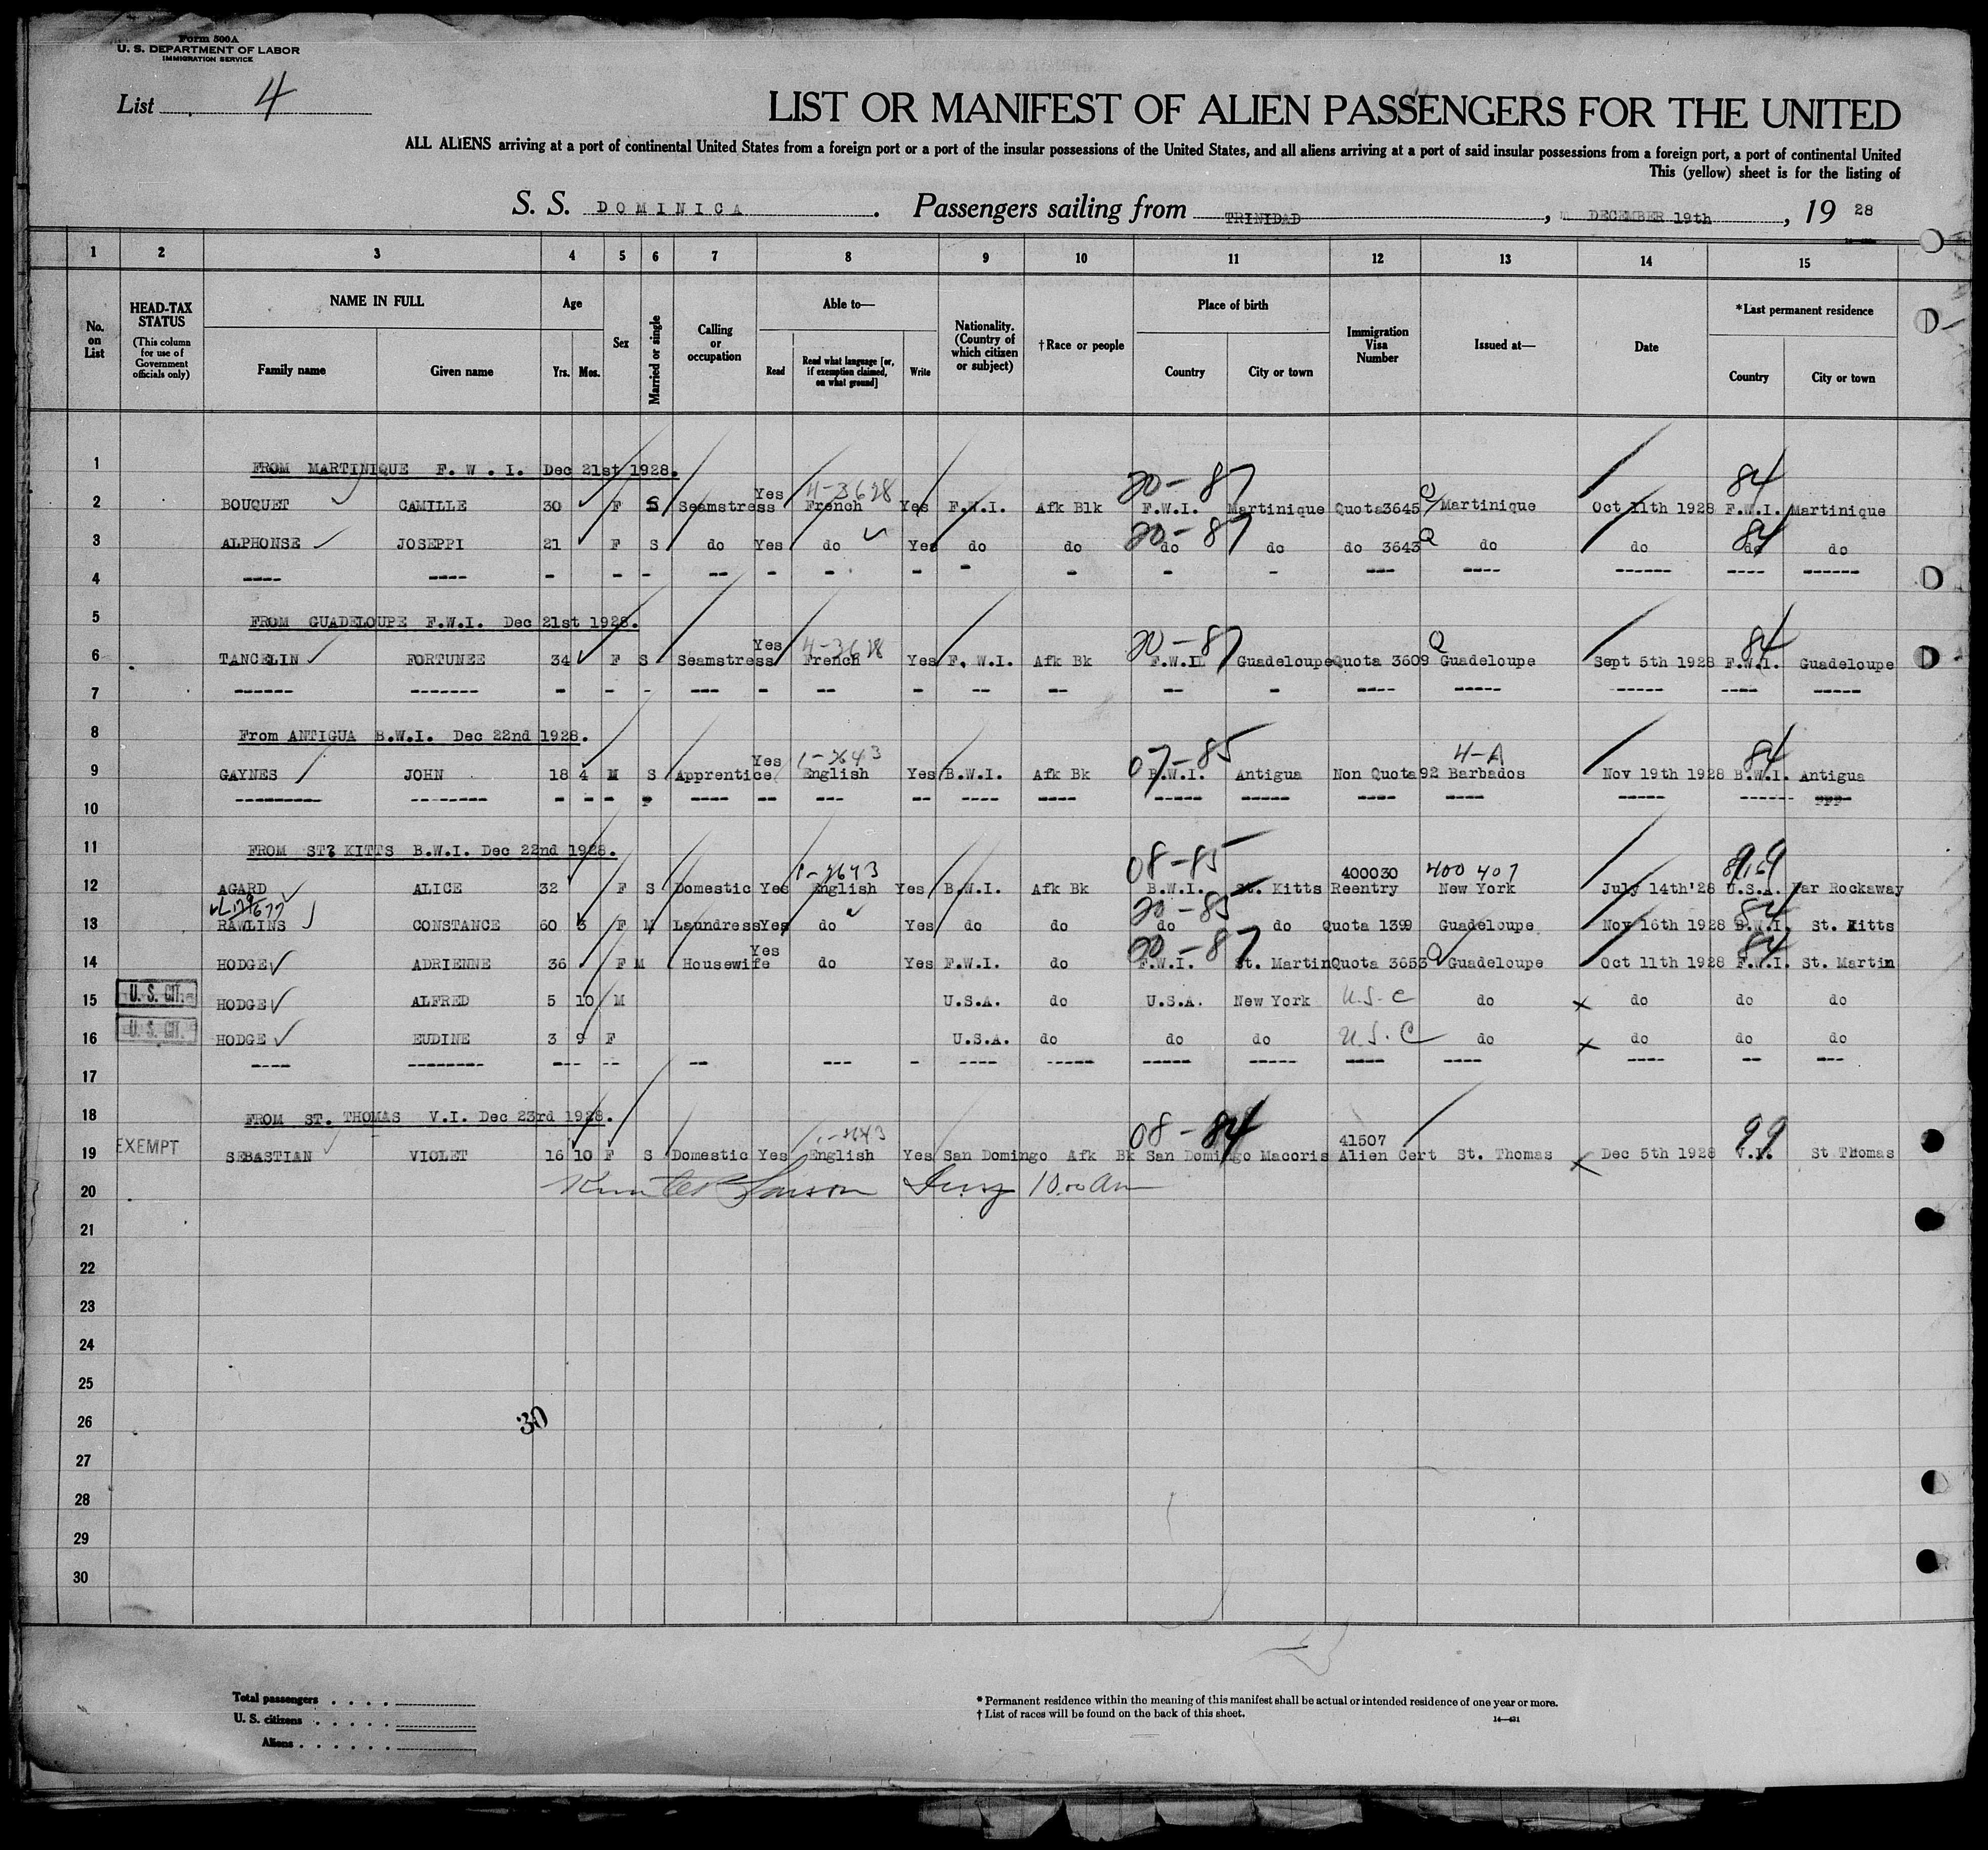 Form 500A
U. S. DEPARTMENT OF LABOR
IMMIGRATION SERVICE
List 4
LIST OR MANIFEST OF ALIEN PASSENGERS FOR THE UNITED
ALL ALIENS arriving at a port of continental United States from a foreign port or a port of the insular possessions of the United States, and all aliens arriving at a port of said insular possessions from a foreign port, a port of continental United
This (yellow) sheet is for the listing of
S. S. DOMINICA. Passengers sailing from TRINIDAD, DECEMBER 19th, 19 28
1 2 3 4 5 6 7 8 9 10 11 12 13 14 15
No. on List
HEAD-TAX STATUS (This column for use of Government officials only)
NAME IN FULL Family name Given name
Age Yrs. Mos.
Sex
Married or single
Calling or occupation
Able to— Read Read what language [or, if exemption claimed, on what ground] Write
Nationality. (Country of which citizen or subject)
†Race or people
Place of birth Country City or town
Immigration Visa Number
Issued at—
Date
*Last permanent residence Country City or town
1 FROM MARTINIQUE F. W. I. Dec 21st 1928.
4-3628 20-87 84
2 BOUQUET CAMILLE 30 F S Seamstress Yes French Yes F.W.I. Afk Blk F.W.I. Martinique Quota 3645 Q Martinique Oct 11th 1928 F.W.I. Martinique
20-87 84
3 ALPHONSE JOSEPPI 21 F S do Yes do Yes do do do do do 3643 Q do do do do
4 ---- ---- - - - -- - - - - - - - --- ---- ------ ---- ------
5 FROM GUADELOUPE F.W.I. Dec 21st 1928.
4-3628 20-87 84
6 TANCELIN FORTUNEE 34 F S Seamstress Yes French Yes F. W.I. Afk Bk F.W.I. Guadeloupe Quota 3609 Q Guadeloupe Sept 5th 1928 F.W.I. Guadeloupe
7 ------ ------- - - - --- - -- - -- -- -- - ---- ----- ------ ---- -----
8 From ANTIGUA B.W.I. Dec 22nd 1928.
1-2643 07-85 4-A 84
9 GAYNES JOHN 18 4 M S Apprentice Yes English Yes B.W.I. Afk Bk B.W.I. Antigua Non Quota 92 Barbados Nov 19th 1928 B.W.I. Antigua
10 --------- -------- - - - - ---- -- --- -- ---- ---- ----- ----- ---- ---- ----- ------
11 FROM ST? KITTS B.W.I. Dec 22nd 1928.
1-2643 08-85 400030 400 407 99
12 AGARD ALICE 32 F S Domestic Yes English Yes B.W.I. Afk Bk B.W.I. St. Kitts Reentry New York July 14th'28 U.S.A. Far Rockaway
20-85 84
13 RAWLINS CONSTANCE 60 3 F M Laundress Yes do Yes do do do do Quota 1399 Guadeloupe Nov 16th 1928 B.W.I. St. Kitts
20-87 84
14 HODGE ADRIENNE 36 F M Housewife Yes do Yes F.W.I. do F.W.I. St. Martin Quota 3653 Q Guadeloupe Oct 11th 1928 F.W.I. St. Martin
15 U. S. CIT. HODGE ALFRED 5 10 M U.S.A. do U.S.A. New York U.S.C do x do do do
16 U. S. CIT. HODGE EUDINE 3 9 F U.S.A. do do do U.S.C do x do do do
17 ---- -------- --- -- -- --- - ---- ----- ---- -- ---- ---- ---- -- ---
18 FROM ST. THOMAS V.I. Dec 23rd 1928.
08-84 41507 99
19 EXEMPT SEBASTIAN VIOLET 16 10 F S Domestic Yes English Yes San Domingo Afk Bk San Domingo Macoris Alien Cert St. Thomas x Dec 5th 1928 V.I. St Thomas
20
21
22
23
24
25
26
30
27
28
29
30
Total passengers . . . .
U. S. citizens . . . . .
Aliens . . . . . .
* Permanent residence within the meaning of this manifest shall be actual or intended residence of one year or more.
† List of races will be found on the back of this sheet.
14—421